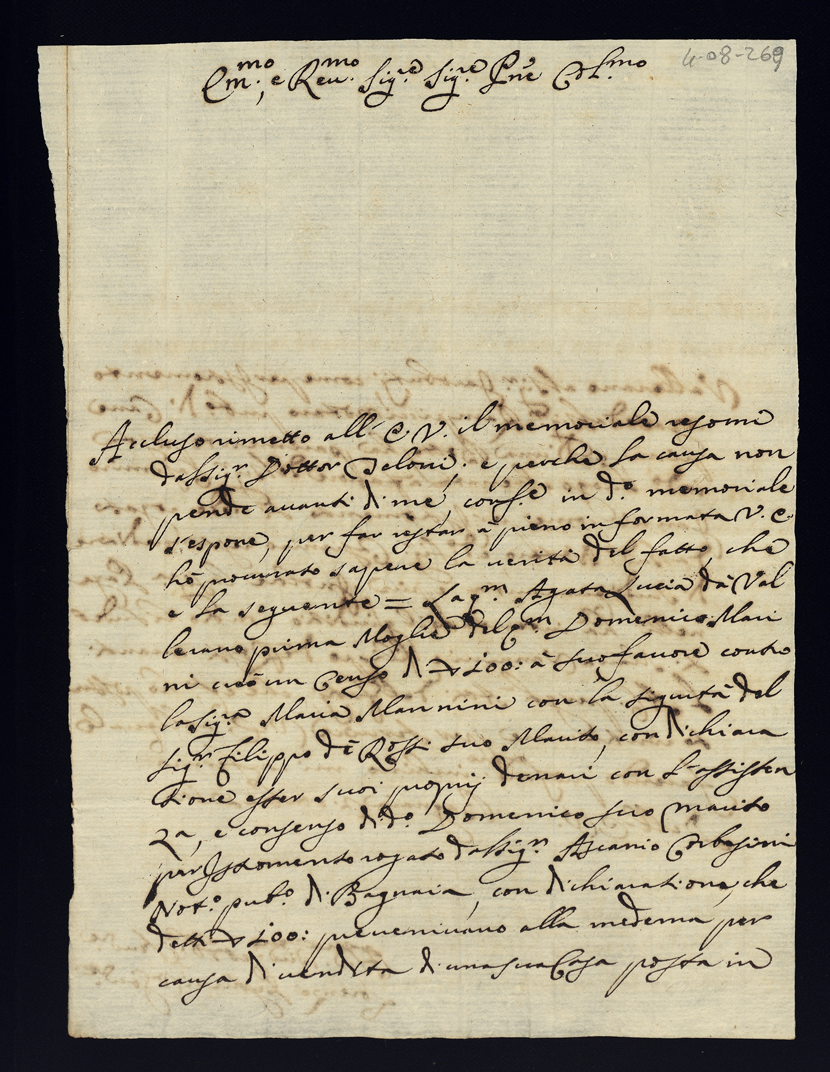 4-08-269
Em.mo, e Reu.mo Sig.re Sig.re Pne Col.mo
Accluso rimetto all' E. V. il memoriale
dal Sig.r Dottor Teloni: e perche la causa non
pende auanti di me, conf.e in d.o memoriale
s'espone, per far restar à pieno informata V. E.
hò procurato sapere la verità del fatto, che
e la seguente = La q.m Agata Lucia dà Val
lerano prima Moglie del q.m Domenico Mari
ni creò un Censo di ∇ 100: à suo fauore contro
la Sig.ra Maria Mannini con la sigurtà del
Sig.r Filippo dè Rossi suo Marito, con dichiara
tione esser suoi proprij denari con l'assisten
za, e consenso di d.o Domenico suo marito
per Istromento rogato dal Sig.r Ascanio
Not.o pub.o di Bagnaia, con dichiaratione, che
detti ∇ 100: preueniuano alla medema per
causa di vendita di una sua Casa posta in